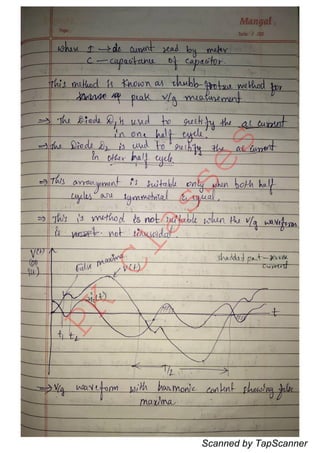 Mangal
Page:
Date: / /20
where I → dc current read by meter.
C — capacitance of capacitor.
This method is known as chubb-fortscue method for
peak v/g measurement
⇒ The Diode D, is used to rectify the ac current
in one half cycle.
⇒ The Diode D2 is used to rectify the ac current
in other half cycle
⇒ This arrangement is suitable only when both half
cycles are symmetrical & equal.
⇒ This is method is not suitable when the v/g waveform
is not sinusoidal
V(t)
(or)
i(t)
False maxima
V(t)
i(t)
shaded part — 
current
t
t1 t2
T/2
→ V/g waveform with harmonic content showing false
maxima.
PK Classes
Scanned by TapScanner